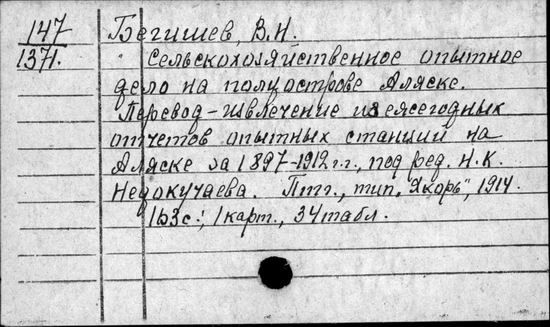 147
1371.
Бегишев, В.Н.
Сельскохозяйственное опытное
дело на полуострове Аляске.
Перевод-извлечение из ежегодных
отчетов опытных станций на
Аляске за 1897-1912 г.г., под ред. Н.К.
Недокучаева. Птг., тип. "Якорь", 1914.
163с.; 1 карт., 34 табл.